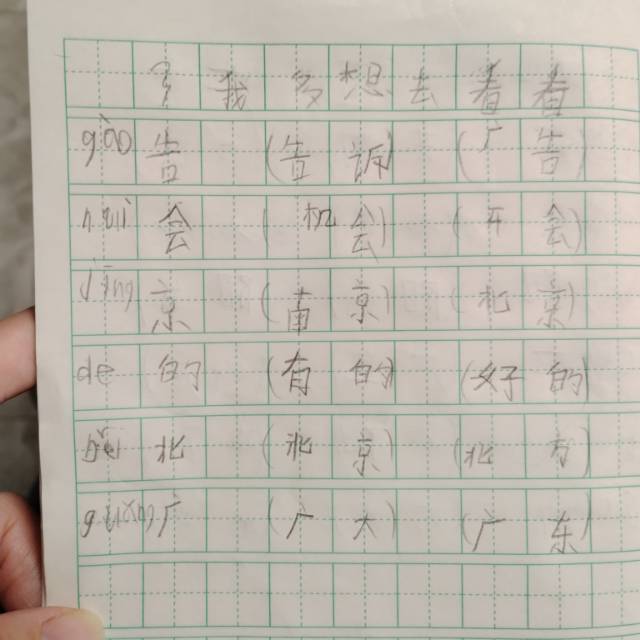 我多想去看看
gào 告 (告诉) (广告)
huì 会 (机会) (开会)
jīng 京 (南京) (北京)
de 的 (有的) (好的)
běi 北 (北京) (北方)
guǎng 广 (广大) (广东)